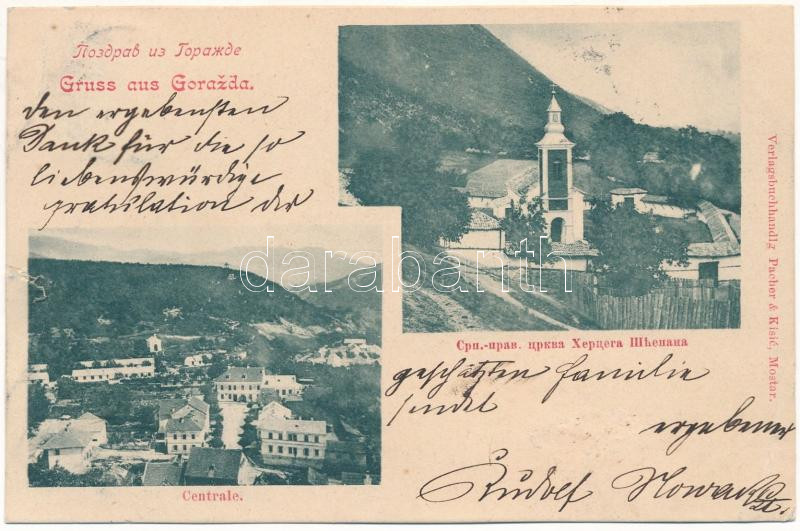 Поздрав из Горажде
Gruss aus Goražda.
den ergebensten
Dank für die so
liebenswürdige
gratulation der
Срп.-прав. црква Херцега Шћепана
geschätzten Familie
sendet
ergebener
Rudolf Nowak
Centrale.
Verlagsbuchhandlg Pacher & Kisić, Mostar.
darabanth